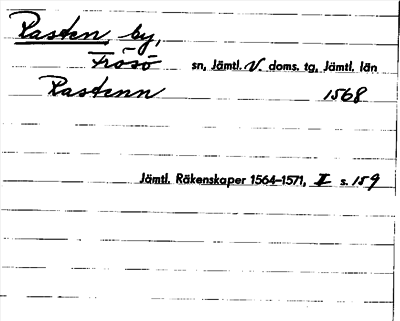 Rasten by,
Frösö sn, Jämtl. V. doms. tg, Jämtl. län
Rastenn 1568
Jämtl. Räkenskaper 1564–1571, II s. 159